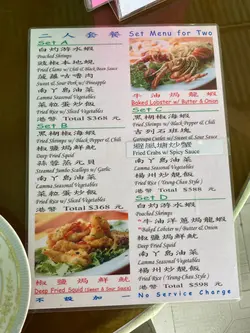 二人套餐
Set Menu for Two
Set A
白灼游水蝦
Poached Shrimps
豉椒本地蜆
Fried Clams w/ Chili & Black Bean Sauce
菠蘿咕嚕肉
Sweet & Sour Pork w/ Pineapple
南丫島油菜
Lamma Seasonal Vegetables
菜粒蛋炒飯
Fried Rice w/ Mixed Vegetables
港幣 Total $368 元
Set B
黑椒椒海蝦
Fried Shrimps w/ Black Pepper & Chili
椒鹽焗鮮魷
Deep Fried Squid
蒜蓉蒸元貝
Steamed Jumbo Scallops w/ Garlic
南丫島油菜
Lamma Seasonal Vegetables
菜粒蛋炒飯
Fried Rice w/ Mixed Vegetables
港幣 Total $368 元
椒鹽焗鮮魷
Deep Fried Squid (Sweet & Sour Sauce)
不設加一
牛油焗龍蝦
Baked Lobster w/ Butter & Onion
Set C
黑椒椒海蝦
Fried Shrimps w/ Black Pepper & Chili
古列石班塊
Garoupa Cutlet w/ Sweet & Sour Sauce
避風塘炒蟹
Fried Crabs w/ Spicy Sauce
南丫島油菜
Lamma Seasonal Vegetables
揚州炒靚飯
Fried Rice (Yeung Chow Style)
港幣 Total $598 元
Set D
白灼游水蝦
Poached Shrimps
牛油洋蔥焗龍蝦
Baked Lobster w/ Butter & Onion
椒鹽焗鮮魷
Deep Fried Squid
南丫島油菜
Lamma Seasonal Vegetables
揚州炒靚飯
Fried Rice (Yeung Chow Style)
港幣 Total $688 元
No Service Charge